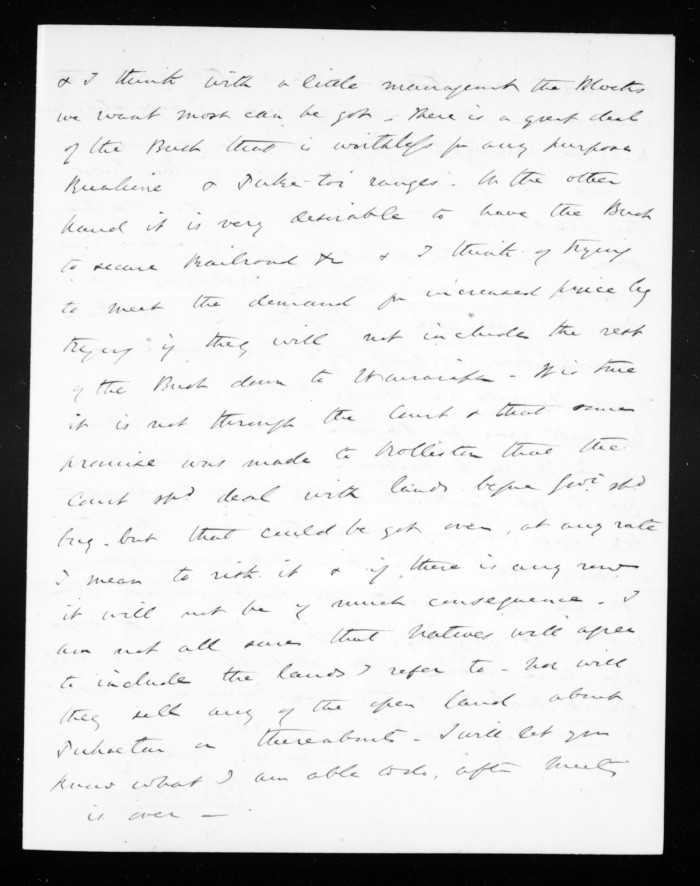 & I think with a little managemt the Blocks
we want most can be got - There is a great deal
of the Bush that is worthless for any purpose
Ruahine & Puke-toi ranges. On the other
hand it is very desirable to have the Bush
to secure Railroad &c & I think of trying
to meet the demand for increased price by
trying if they will not include the rest
of the Bush down to - It is true
it is not through the Court & that some
promise was made to Rolleston that the
Court shd deal with lands before Govt shd
buy. but that could be got over, at any rate
I mean to risk it & if there is any row
it will not be of much consequence. I
am not all sure that Natives will agree
to include the lands I refer to - nor will
they sell any of the open land about
or thereabouts - I will let you
know what I am able to do, after Meetg
is over —